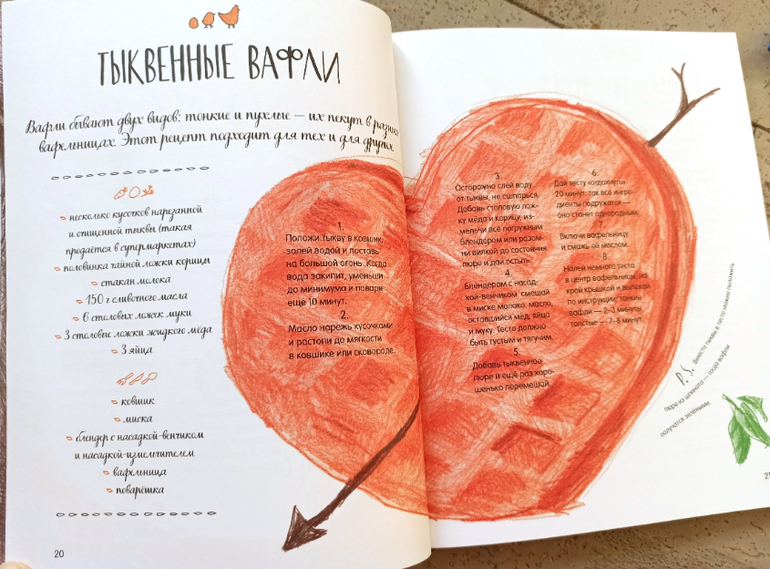 ТЫКВЕННЫЕ ВАФЛИ
Вафли бывают двух видов: тонкие и пухлые — их пекут в разных
вафельницах. Этот рецепт подходит для тех и для других.
несколько кусочков нарезанной
и очищенной тыквы (такая
продаётся в супермаркетах)
половинка чайной ложки корицы
стакан молока
150 г сливочного масла
6 столовых ложек муки
3 столовые ложки жидкого мёда
3 яйца
ковшик
миска
блендер с насадкой-венчиком
и насадкой-измельчителем
вафельница
поварёшка
20
1.
Положи тыкву в ковшик,
залей водой и поставь
на большой огонь. Когда
вода закипит, уменьши
до минимума и повари
ещё 10 минут.
2.
Масло нарежь кусочками
и растопи до мягкости
в ковшике или сковороде.
3.
Осторожно слей воду
от тыквы, не ошпарься.
Добавь столовую лож-
ку мёда и корицу, из-
мельчи всё погружным
блендером или разом-
ни вилкой до состояния
пюре и дай остыть.
4.
Блендером с насад-
кой-венчиком смешай
в миске молоко, масло,
оставшийся мёд, яйца
и муку. Тесто должно
быть густым и тягучим.
5.
Добавь тыквенное
пюре и ещё раз хоро-
шенько перемешай.
6.
Дай тесту отдохнуть
20 минут: так все ингре-
диенты подружатся —
оно станет однородным.
Включи вафельницу
и смажь её маслом.
8.
Налей немного теста
в центр вафельницы, на-
крой крышкой и выпекай
по инструкции: тонкие
вафли — 2–3 минуты,
толстые — 7–8 минут.
P.S. Вместо тыквы в тесто можно положить
пюре из шпината — тогда вафли
получатся зелёными.